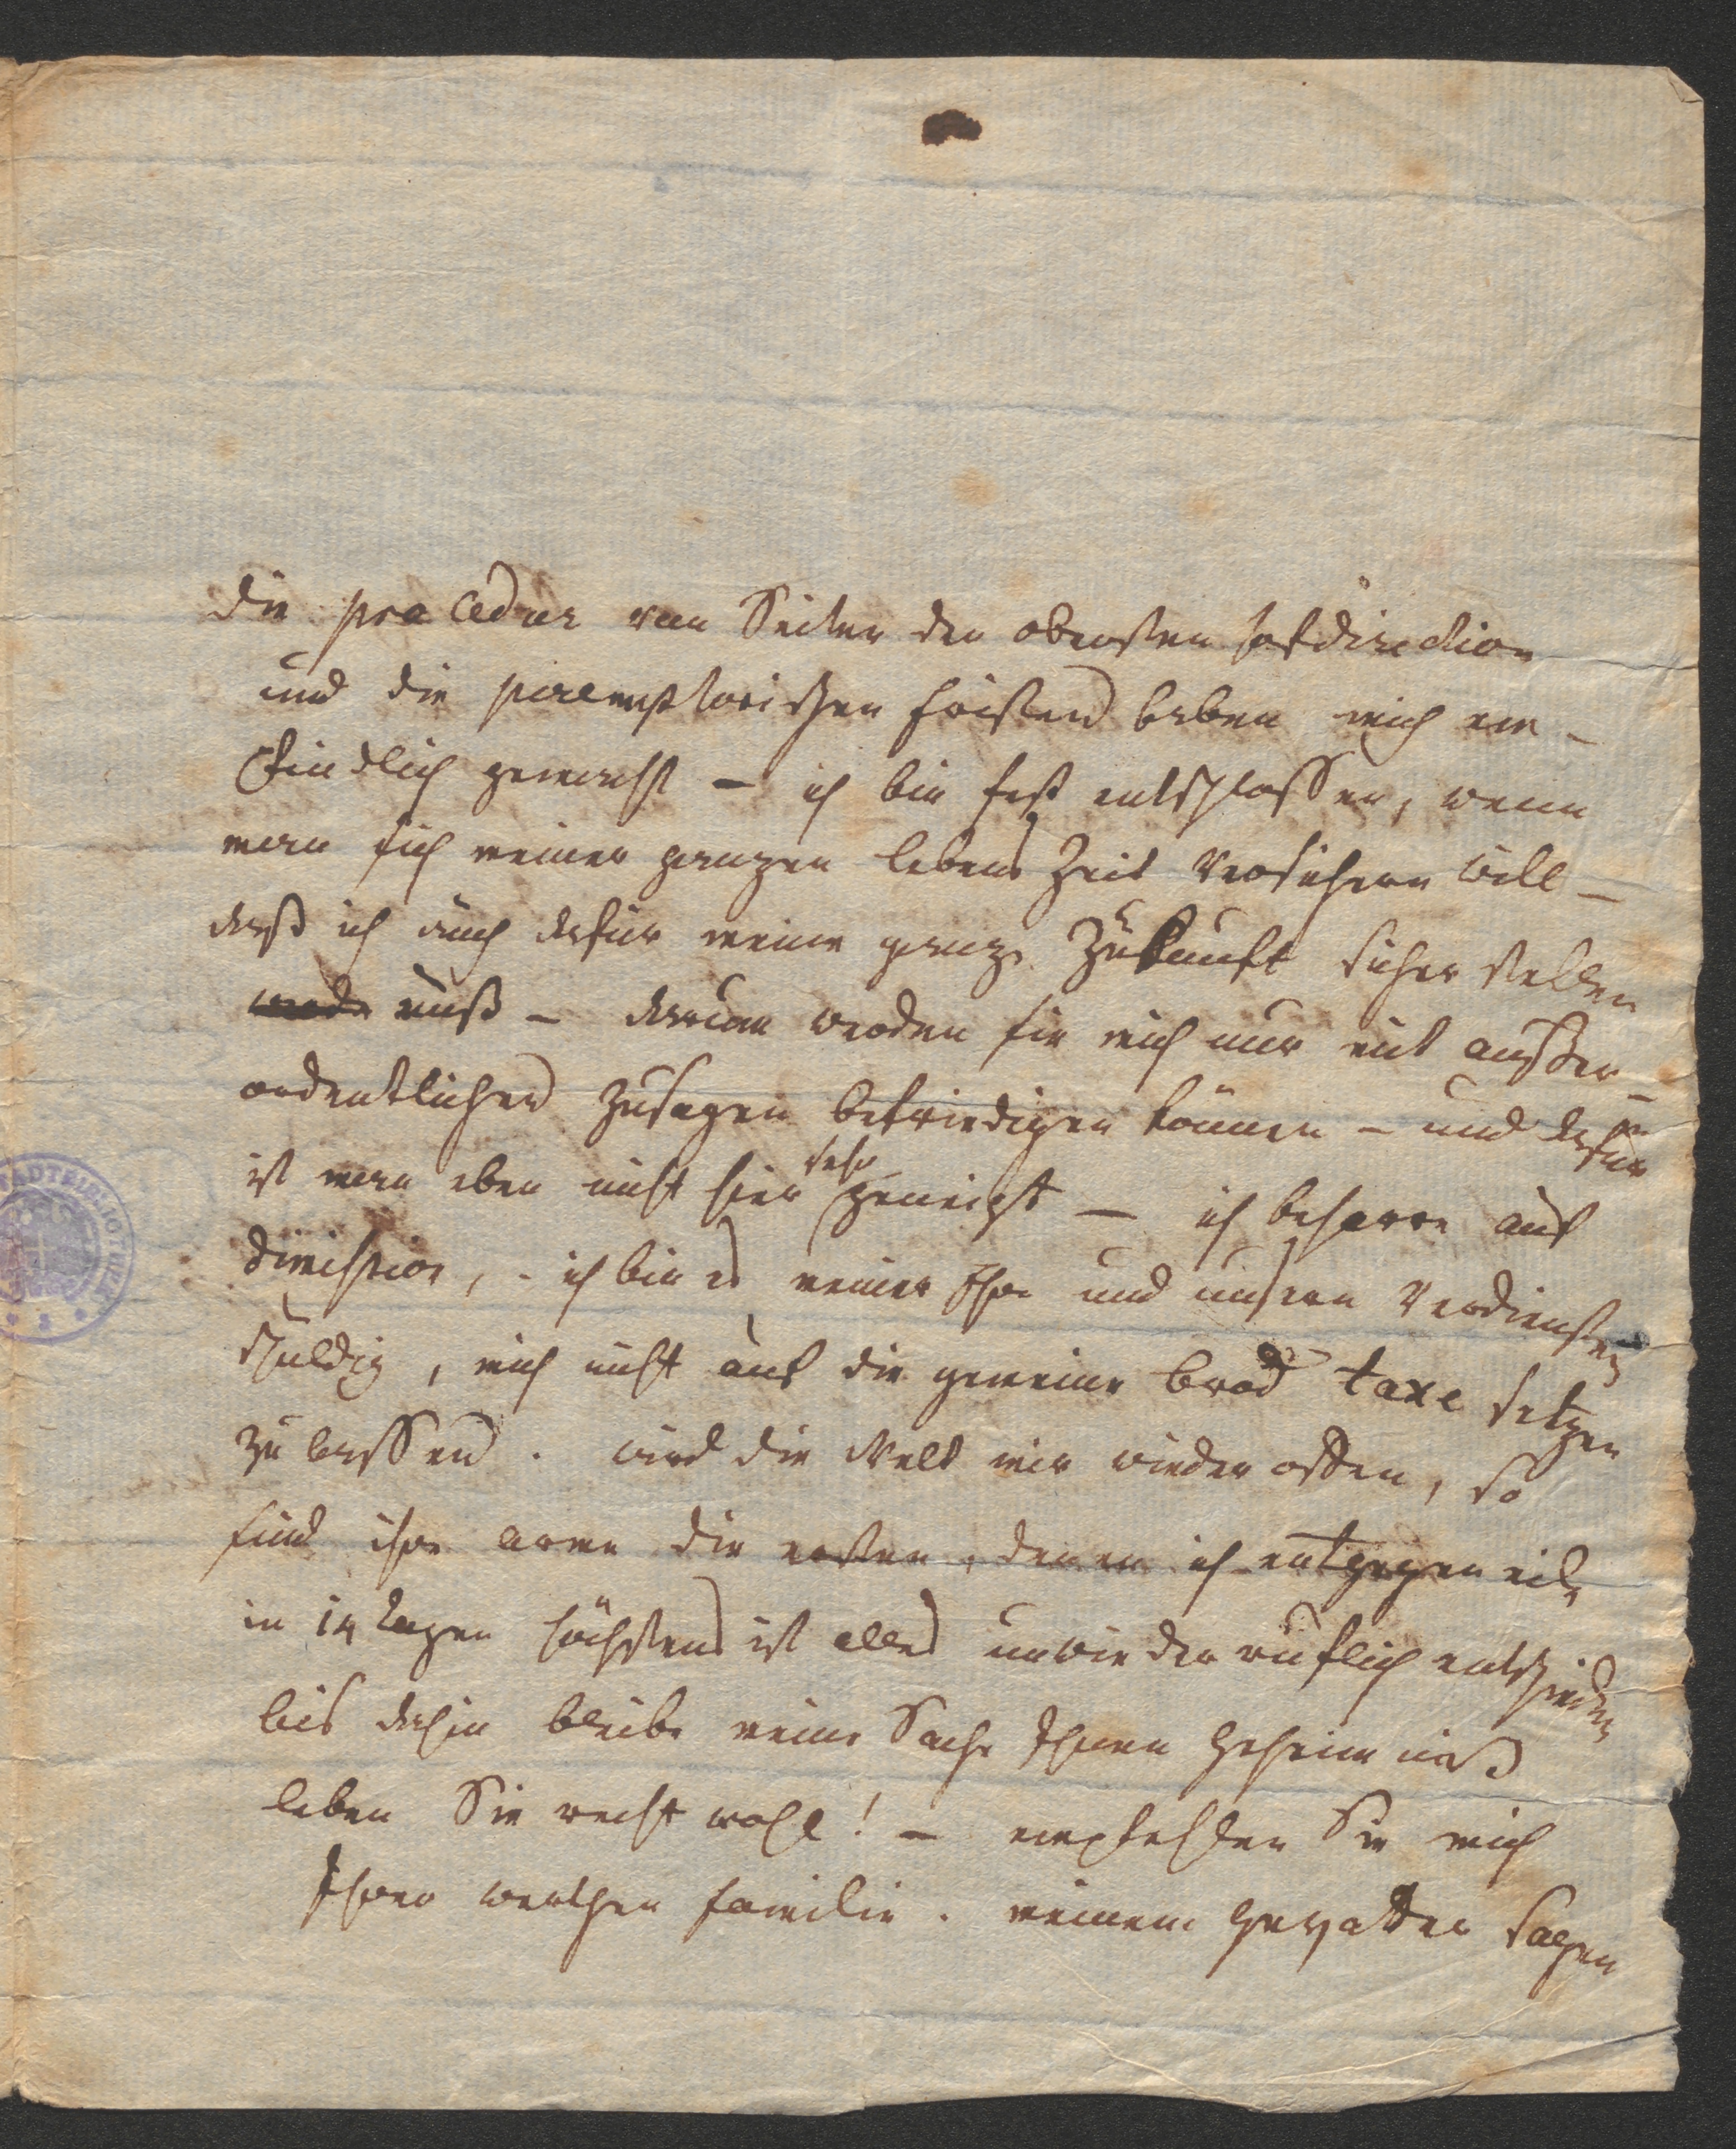 die procedur von Seiten der obersten hofdirection
und die peremptorischen fristen haben mich em-
pfindlich gemacht – ich bin fest entschlossen, wenn
man sich meiner ganzen lebens Zeit versichern will –
daß ich auch dafür meine ganze Zukunft sicher stellen
muß – darum werden sie mich nur mit außer-
ordentlichen zusagen befriedigen können – und dafür
ist man eben nicht hier sehr geneigt – ich beharre auf
dimission, – ich bin es meiner Ehre und unsern Verdiensten
schuldig, mich nicht auf die gemeine brod taxe setzen
zu lassen. wird die Welt mir wieder offen, so
sind ihre arme die ersten, denen ich entgegen eile
in 14 tagen höchstens ist alles unwiederruflich entschieden
bis dahin bleibe meine Sache Ihnen Geheimniß
leben Sie recht wohl! – empfehlen Sie mich
Ihrer werthen familie. meinem Gevatter sagen